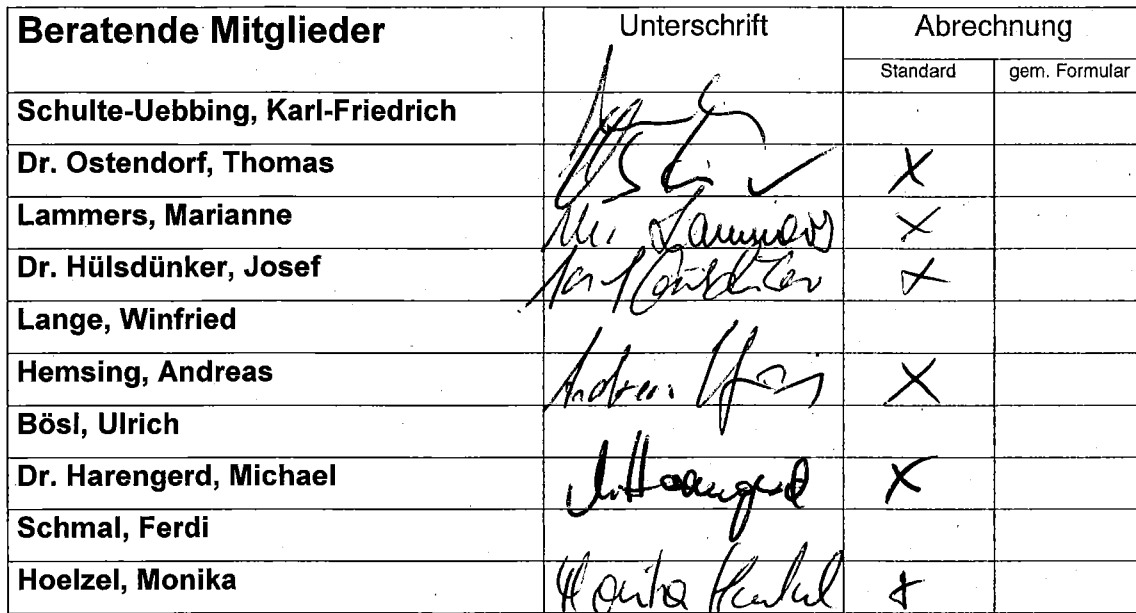 Beratende Mitglieder Unterschrift Abrechnung
Standard gem. Formular
Schulte-Uebbing, Karl-Friedrich
Dr. Ostendorf, Thomas X
Lammers, Marianne M. Lammers X
Dr. Hülsdünker, Josef X
Lange, Winfried
Hemsing, Andreas Andreas X
Bösl, Ulrich
Dr. Harengerd, Michael X
Schmal, Ferdi
Hoelzel, Monika X